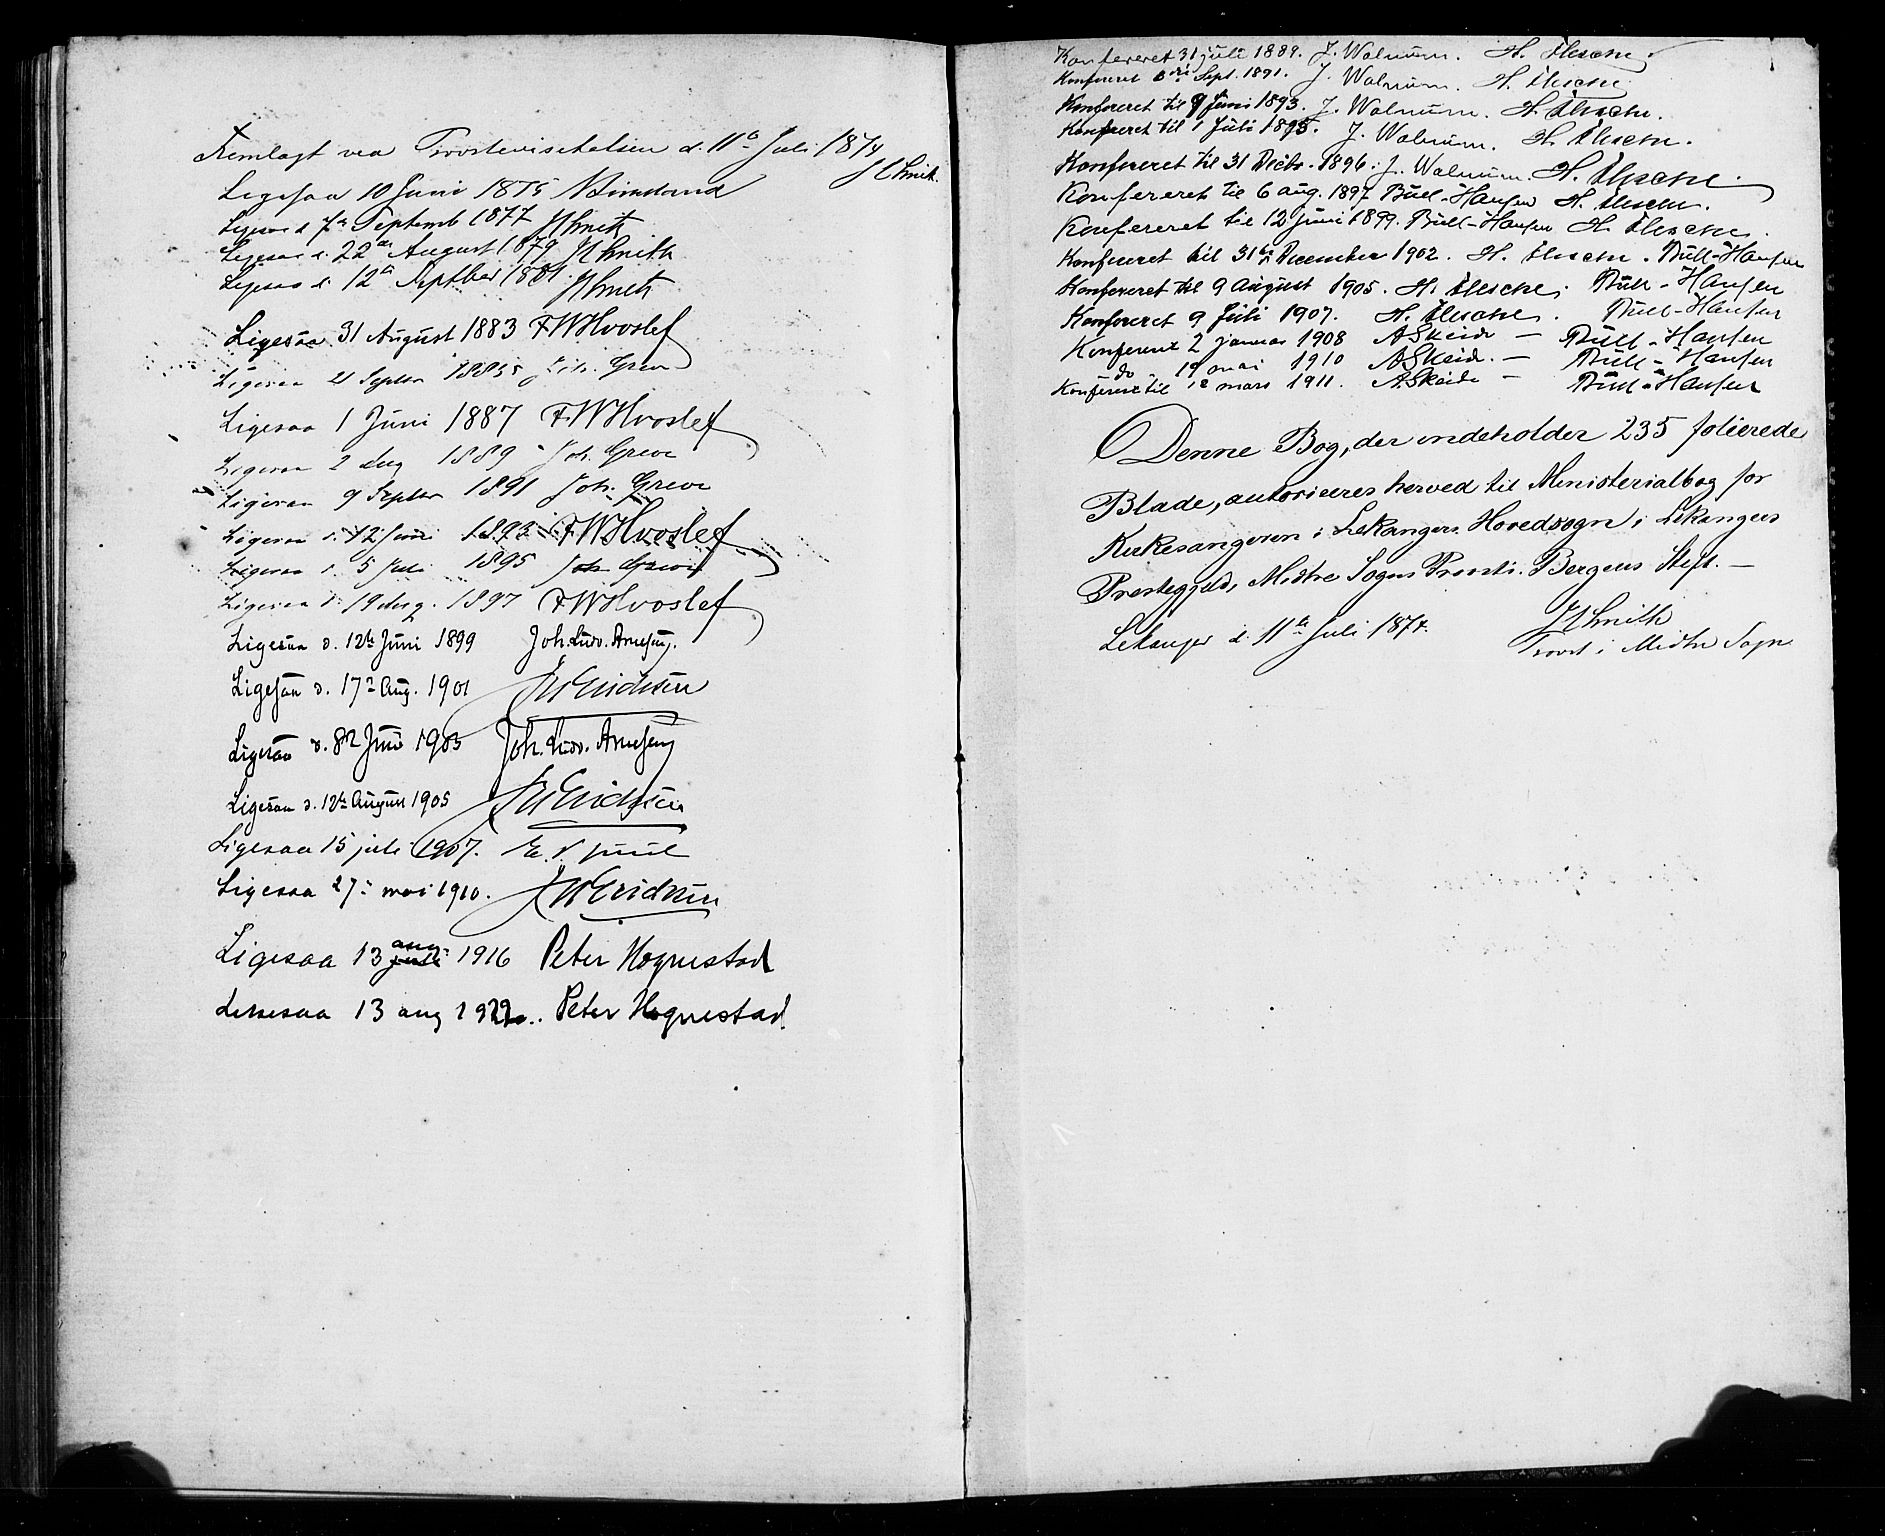 Fremlagt ved Provstevisitatsen d. 11te Juli 1874
JSmith.
Ligesaa 10 Juni 1875
Ligesaa d 7de Septemb 1877 JSmith
Ligesaa d. 22de August 1879 JSmith
Ligesaa d. 12te Septbr 1881. JSmith
Ligesaa 31 August 1883 FWHvoslef
Ligesaa 21 Septbr 1885 Joh. Greve
Ligesaa 1 Juni 1887 FWHvoslef
Ligesaa 2 Aug 1889 Joh. Greve
Ligesaa 9 Septbr 1891 Joh. Greve
Ligesaa d. 12 Juni 1893 FWHvoslef
Ligesaa d. 5 Juli 1895 Joh Greve
Ligesaa d. 19 Aug. 1897 FWHvoslef
Ligesaa d. 12te Juni 1899 Joh. Ludv. Arnesen.
Ligesaa d. 17de Aug. 1901 JWEridksen
Ligesaa d. 8de Juni 1903 Joh. Ludv. Arnesen
Ligesaa d. 12te August 1905 JWEricksen
Ligesaa 15 juli 1907. E. Juul
Ligesaa 27de mai 1910. JWEricksen
Ligesaa 13 juli aug. 1916 Peter Hognestad
Likesaa 13 aug Peter Hognestad.
Konfereret 31 juli 1889. J. Walnum. H. Øksche
Konfereret Sept. 1891. J. Walnum. H. Øksche
Konfereret til 9 Juni 1893. J. Walnum. H. Øksche.
Konfereret til 1 Juli 1895. J. Walnum. H. Øksche.
Konfereret til 31 Decbr. 1896. J. Walnum. H. Øksche.
Konfereret til 6 aug. 1897 Bull-Hansen H. Øksche.
Konfereret til 12 Juni 1899. Bull-Hansen H. Øksche.
Konfereret til 31te December 1902. H. Øksche. Bull-Hansen
Konfereret til 9 August 1905. H. Øksche. Bull-Hansen
Konfereret 9 Juli 1907. H. Øksche. Bull-Hansen
Konfereret 2 januar 1908 ASkeide — Bull-Hansen
do 19 mai 1910 ASkeide. — Bull-Hansen
Konfereret til 12 mars 1911. ASkeide — Bull-Hansen
Denne Bog, der indeholder 235 folierede
Blade, autoriseres herved til Ministerialbog for
Kirkesangeren i Lekangers Hovedsogn i Lekangers
Præstegjeld, Midtre Sogns Provsti. Bergens Stift. —
Lekanger d. 11te Juli 1874.
JSmith
Provst i Midtre Sogn